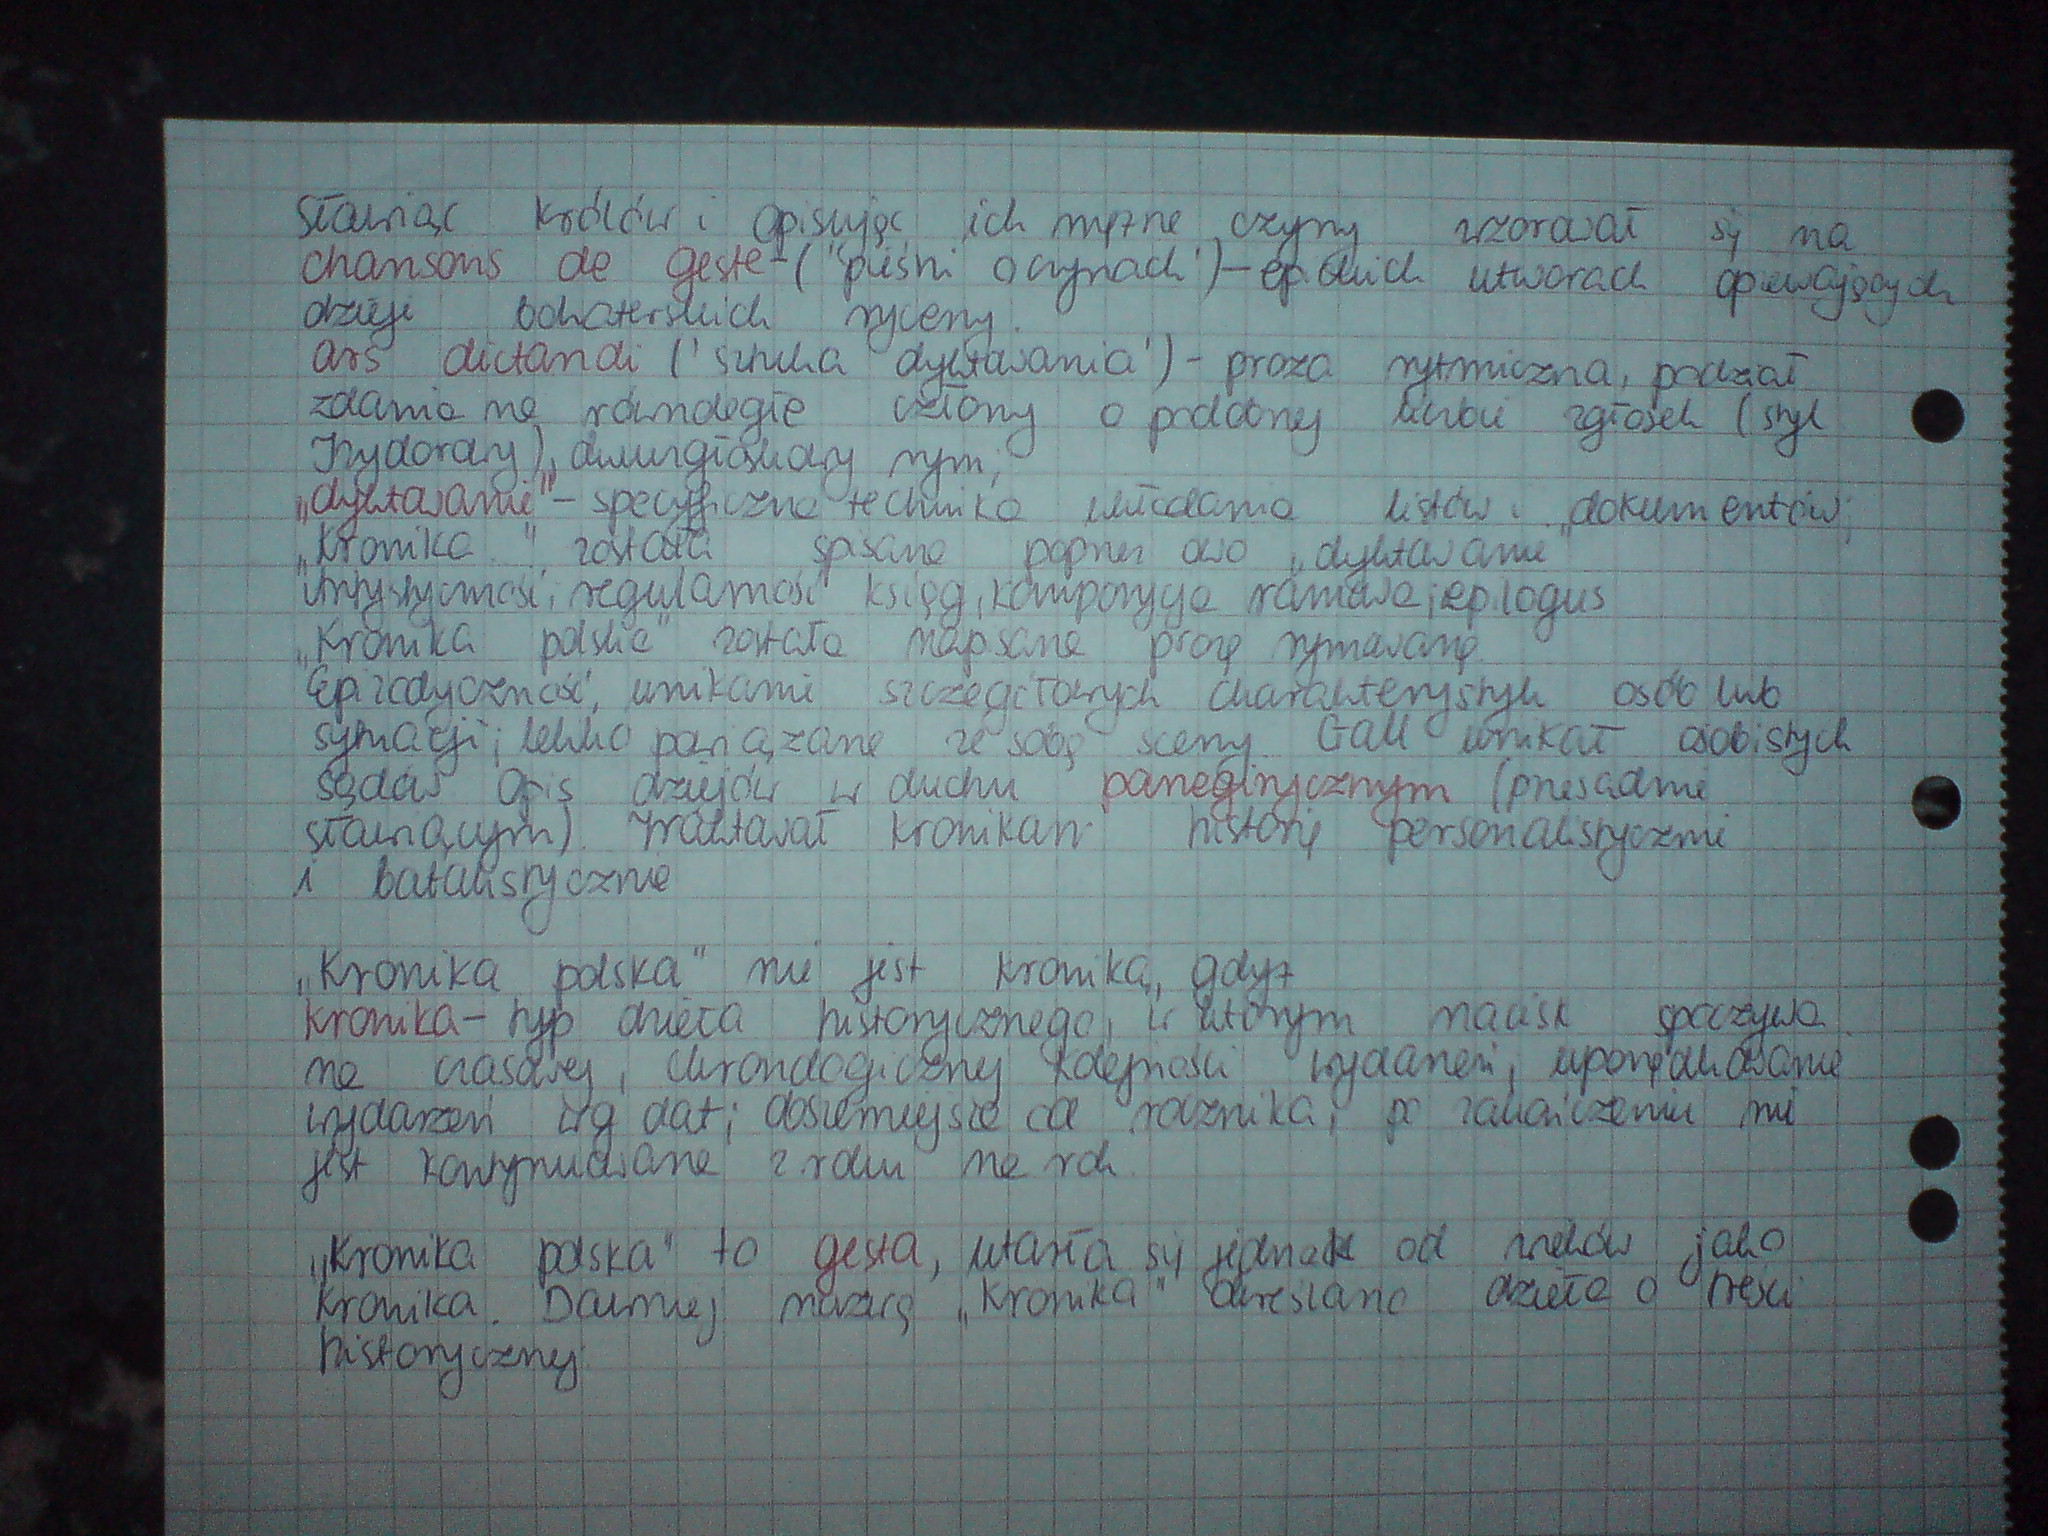 Sławiąc królów i opisując ich mężne czyny wzorował się na
chansons de geste - ('pieśni o czynach') - epickich utworach opiewających
dzieje bohaterskich rycerzy.
ars dictandi ('sztuka dyktowania') - proza rytmiczna, podział
zdania na równoległe człony o podobnej liczbie zgłosek (styl
Izydorowy), dwuzgłoskowy rym;
„dyktowanie" - specyficzna technika układania listów i dokumentów;
„Kronika" została spisana poprzez owo „dyktowanie"
Artystyczność, regularność ksiąg, kompozycja ramowa; epilogus
„Kronika polska" została napisana prozą rymowaną.
Epizodyczność, unikanie szczegółowych charakterystyk osób lub
sytuacji; lekko powiązane ze sobą sceny. Gall unikał osobistych
sądów. Opis dziejów w duchu panegirycznym (przesadnie
sławiącym). Traktował kronikarz historię personalistycznie
i batalistycznie

„Kronika polska" nie jest kroniką, gdyż
kronika - typ dzieła historycznego, w którym nacisk spoczywa
na czasowej, chronologicznej kolejności wydarzeń, uporządkowanie
wydarzeń wg dat; obszerniejsze od rocznika; po zakończeniu nie
jest kontynuowana z roku na rok.

„Kronika polska" to gesta, utarła się jednak od wieków jako
kronika. Dawniej nazwą „Kronika" określano dzieła o treści
historycznej